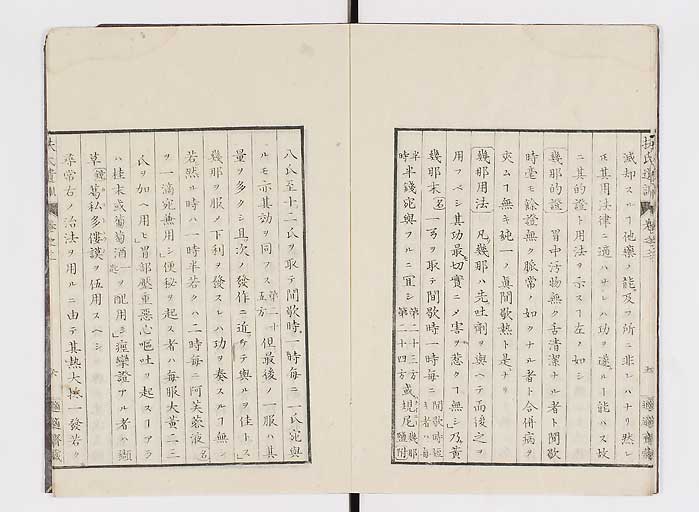 滅却スルヿ他藥ノ能及フ所ニ非レハナリ然レ
𪜈其用法律ニ適ハサレハ功ヲ遂ルヿ能ハス故
ニ其的證ト用法ヲ示スヿ左ノ如シ
幾那的證 胃中汚物無ク舌清潔ナル者ト間歇
時毫モ餘證無ク脈常ノ如クナル者ト合併病ヲ
夾ムヿ無キ純一ノ眞間歇熱ト是ナリ
幾那用法 凡幾那ハ先吐劑ヲ與ヘテ而後之ヲ
用フベシ其功最切實ニメ害ヲ惹クヿ無シ乃黃
幾那末 名 一弓ヲ取テ間歇時一時毎ニ 間歇時短キ者ハ毎
半時 半錢宛與フルニ宜シ 第二十三方 第二十四方 或 幾那 鹽 附
八氏至十二氏ヲ取テ間歇時一時毎ニ一氏宛與
ルモ亦其効ヲ同フス 第二十五方 但最後ノ一服ハ其
量ヲ多クシ且次ノ發作ニ近ケテ與ルヲ佳トス
幾那ヲ服メ下利ヲ發スレハ功ヲ奏スルヿ無シ
若然ル時ハ一時半若クハ二時毎ニ阿芙蓉液 名
ヲ一滴宛兼用シ便秘ヲ起ス者ハ毎服大黃二三
氏ヲ加ヘ用ヒ胃部壓重惡心嘔吐ヲ起スヿアラ
ハ桂末或葡萄酒 ヲ配用シ痙攣證アル者ハ纈
草 葛私多僂謨ヲ伍用スヘシ
尋常右ノ治法ヲ用ルニ由テ其熱大抵一發若ク
扶氏遺訓
適適齋藏